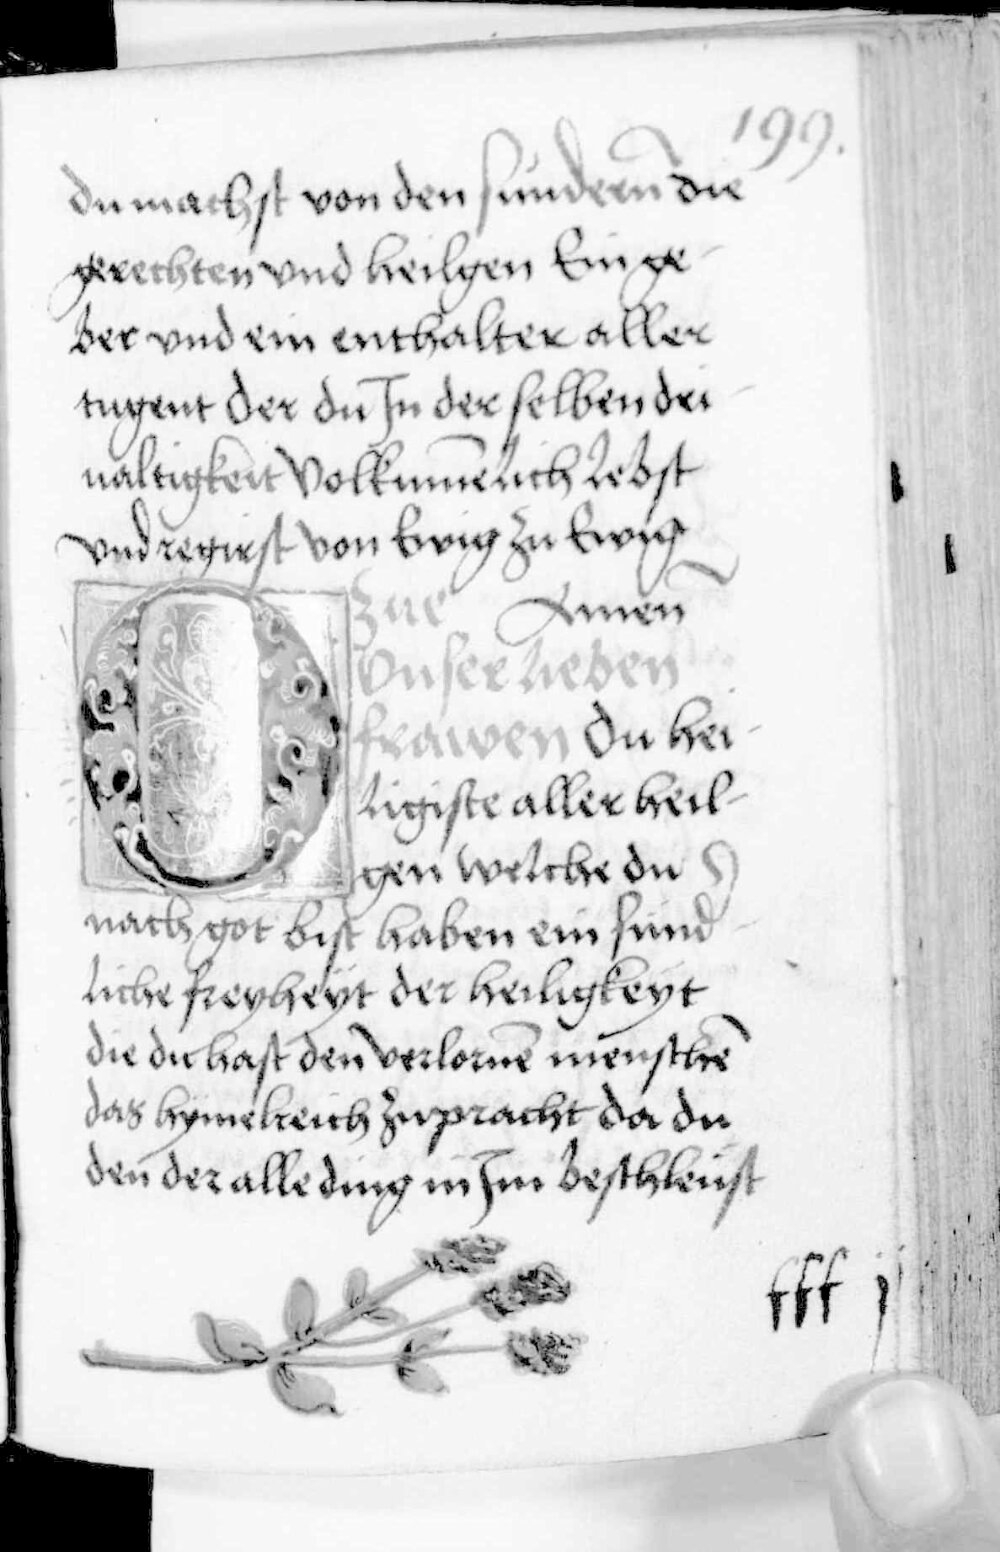 199.
du machst von den sundern̄ die
gerechten vnd heilgen Ein ge-
ber vnd ein enthalter aller
tugent Der du In der selben dri-
ualtigkeit Volkum̄elich Lebst
vnd regirst von Ewig zu Ewig
zue Amen
Vnser lieben
frawen Du hei-
O ligiste aller heil-
gen welche du
nach got bist haben ein sund-
liche freyheyt der heiligkeyt
die du hast den verlornē menschē
das hymelreich zupracht da du
den der alle ding in Im beschleust
fff ij